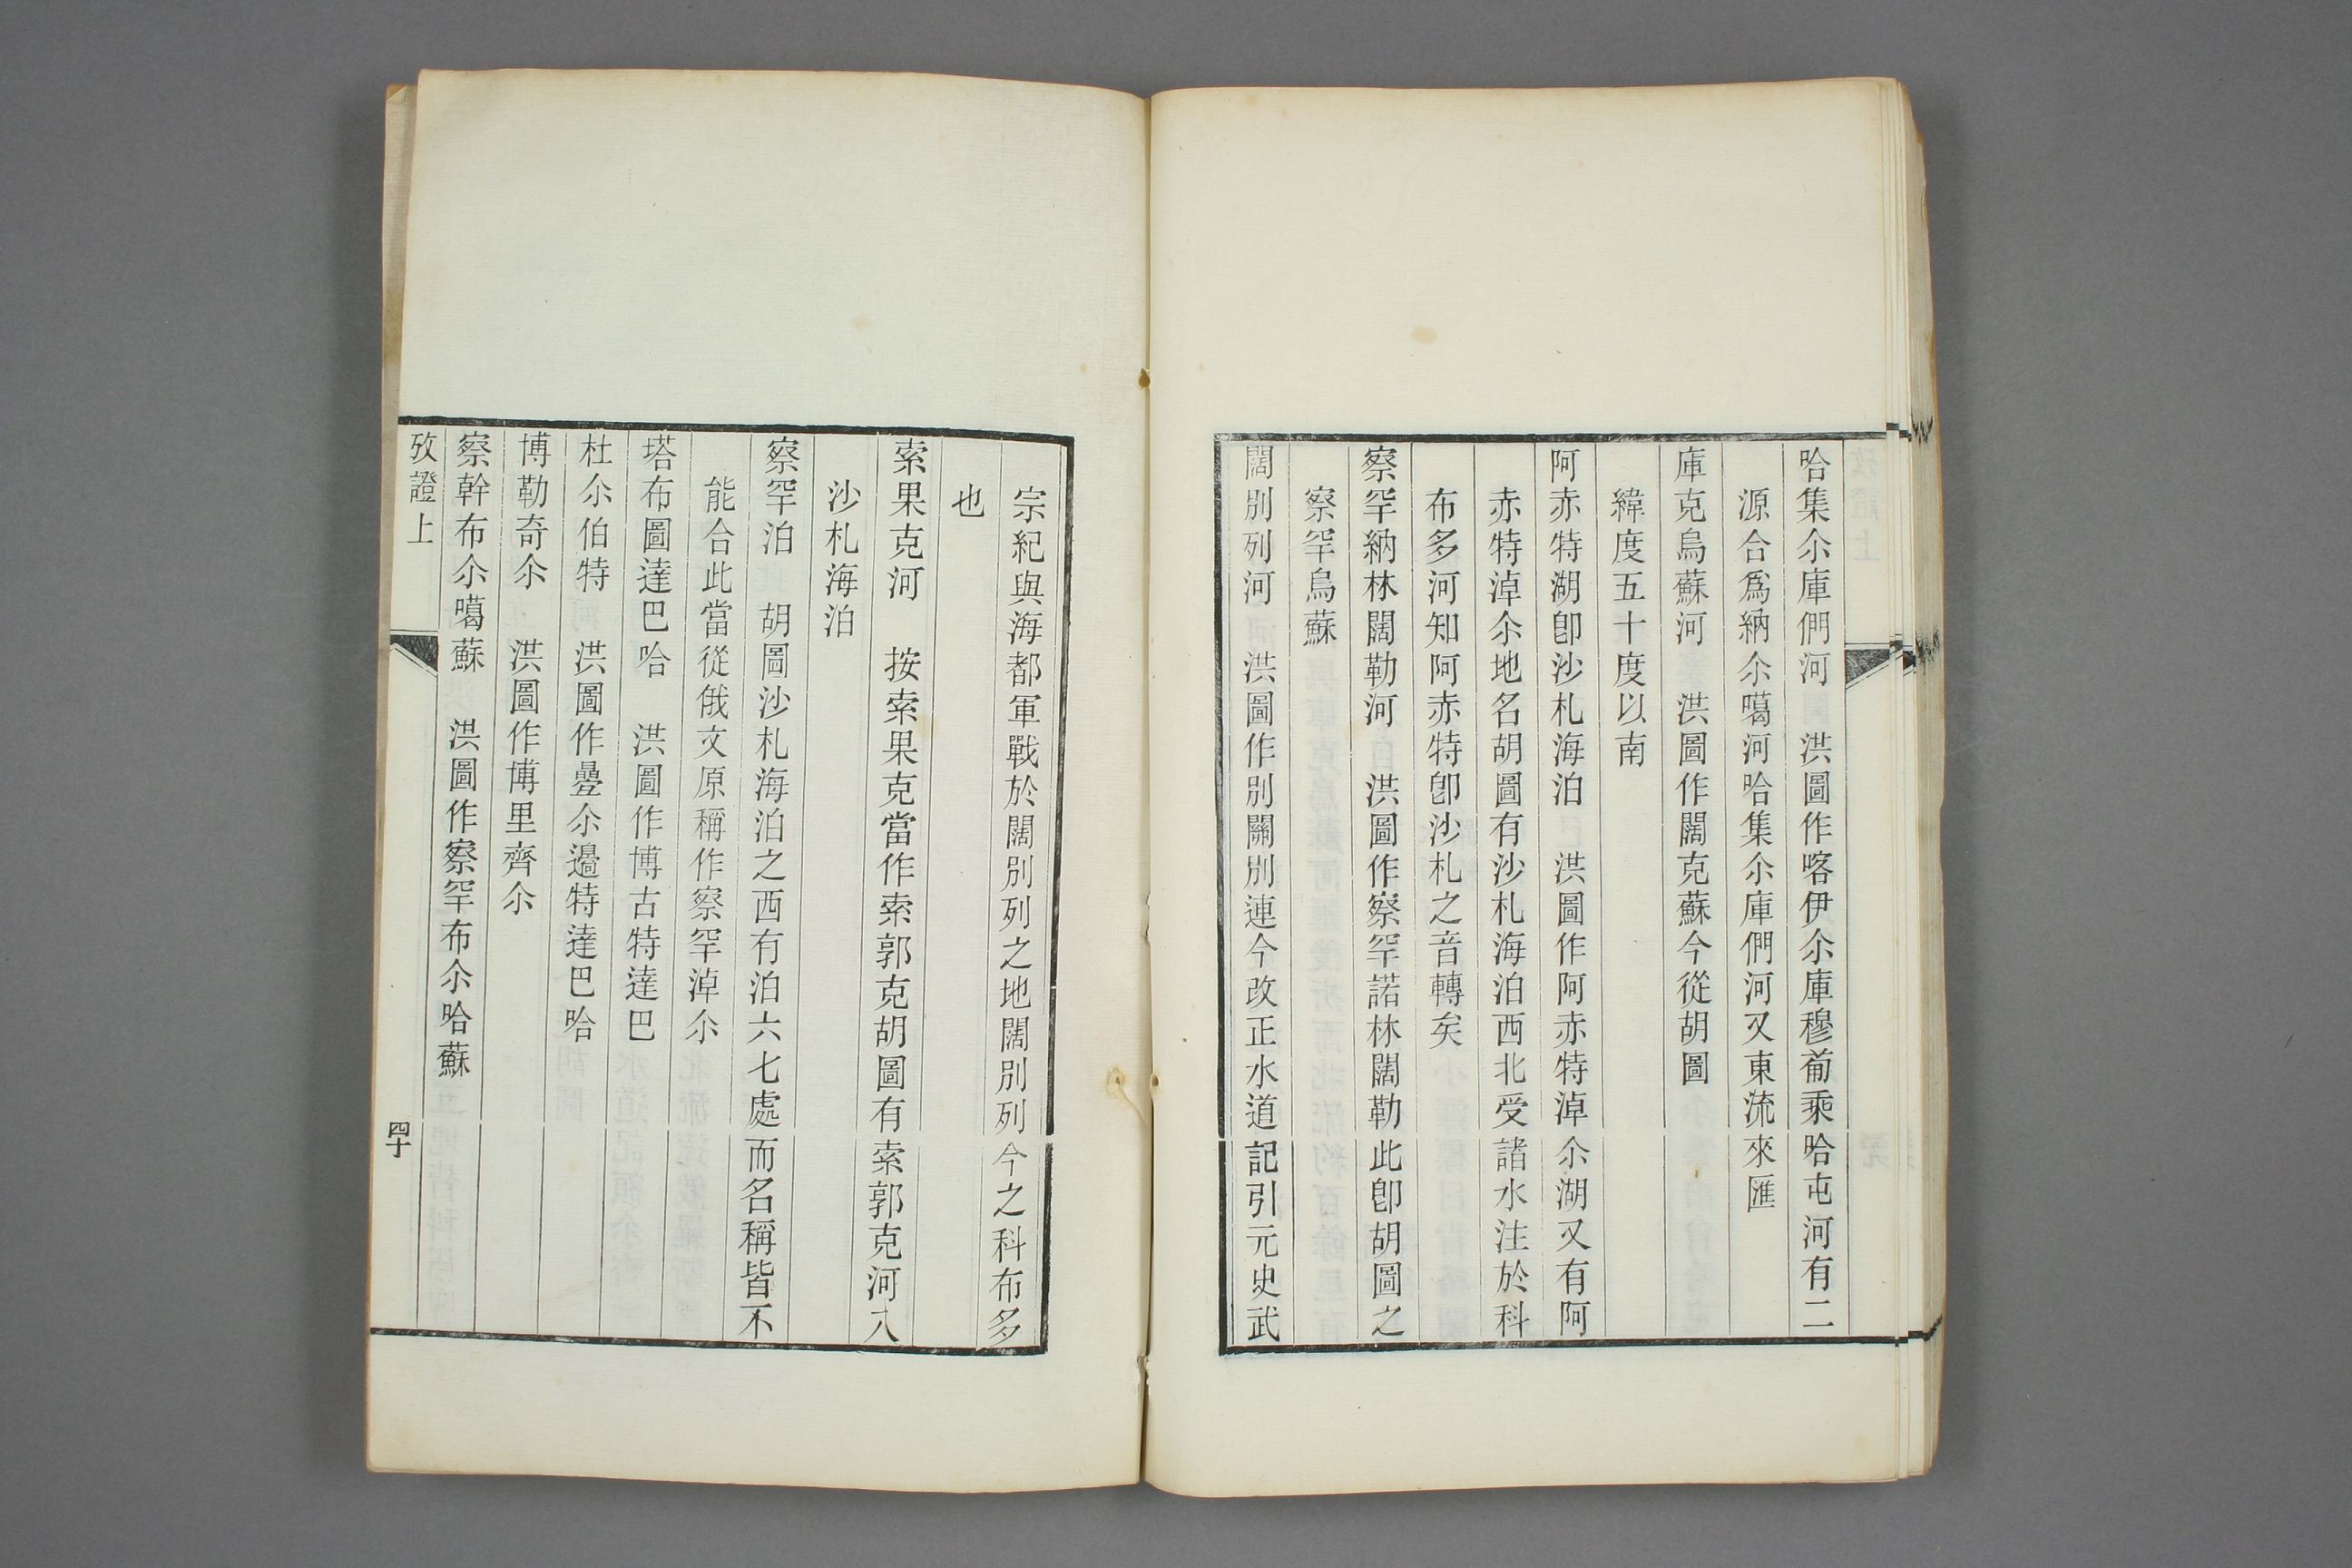 哈集尒庫們河　洪圖作喀伊尒庫穆葡乘哈屯河有二
源合爲納尒噶河哈集尒庫們河又東流來匯
庫克烏蘇河　洪圖作闊克蘇今從胡圖
緯度五十度以南
阿赤特湖卽沙札海泊　洪圖作阿赤特淖尒湖又有阿
赤特淖尒地名胡圖有沙札海泊西北受諸水注於科
布多河知阿赤特卽沙札之音轉矣
察罕納林闊勒河　洪圖作察罕諾林闊勒此卽胡圖之
察罕烏蘇
闊別列河　洪圖作別闢別連今改正水道記引元史武
宗紀與海都軍戰於闊別列之地闊別列今之科布多
也
索果克河　按索果克當作索郭克胡圖有索郭克河入
沙札海泊
察罕泊　胡圖沙札海泊之西有泊六七處而名稱皆不
能合此當從俄文原稱作察罕淖尒
塔布圖達巴哈　洪圖作博古特達巴
杜尒伯特　洪圖作疊尒邊特達巴哈
博勒奇尒　洪圖作博里齊尒
察幹布尒噶蘇　洪圖作察罕布尒哈蘇
攷證上
四十